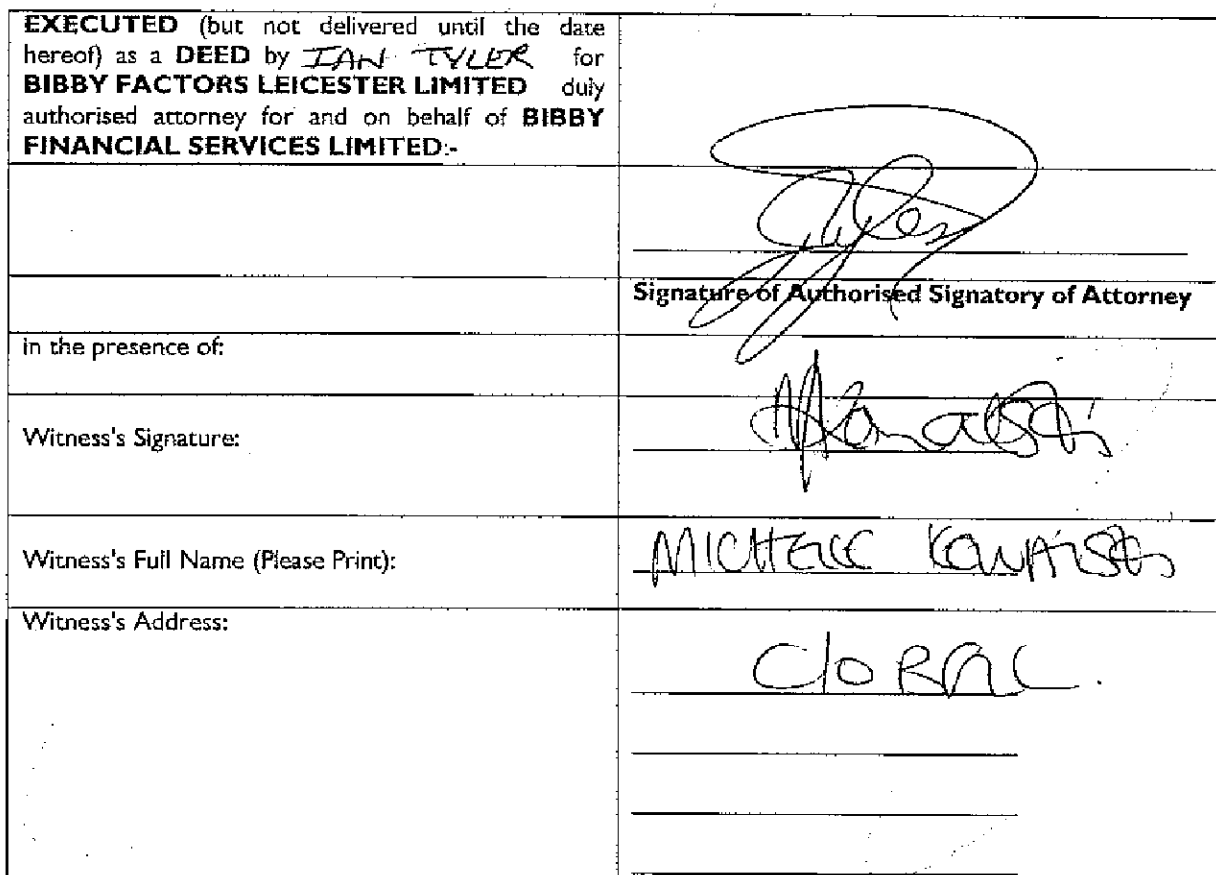 EXECUTED (but not delivered until the date
hereof) as a DEED by IAN TYLER for
BIBBY FACTORS LEICESTER LIMITED duly
authorised attorney for and on behalf of BIBBY
FINANCIAL SERVICES LIMITED:-
Signature of Authorised Signatory of Attorney
in the presence of:
Witness's Signature:
Witness's Full Name (Please Print):
MICHELLE KOWALSKI
Witness's Address:
C/o